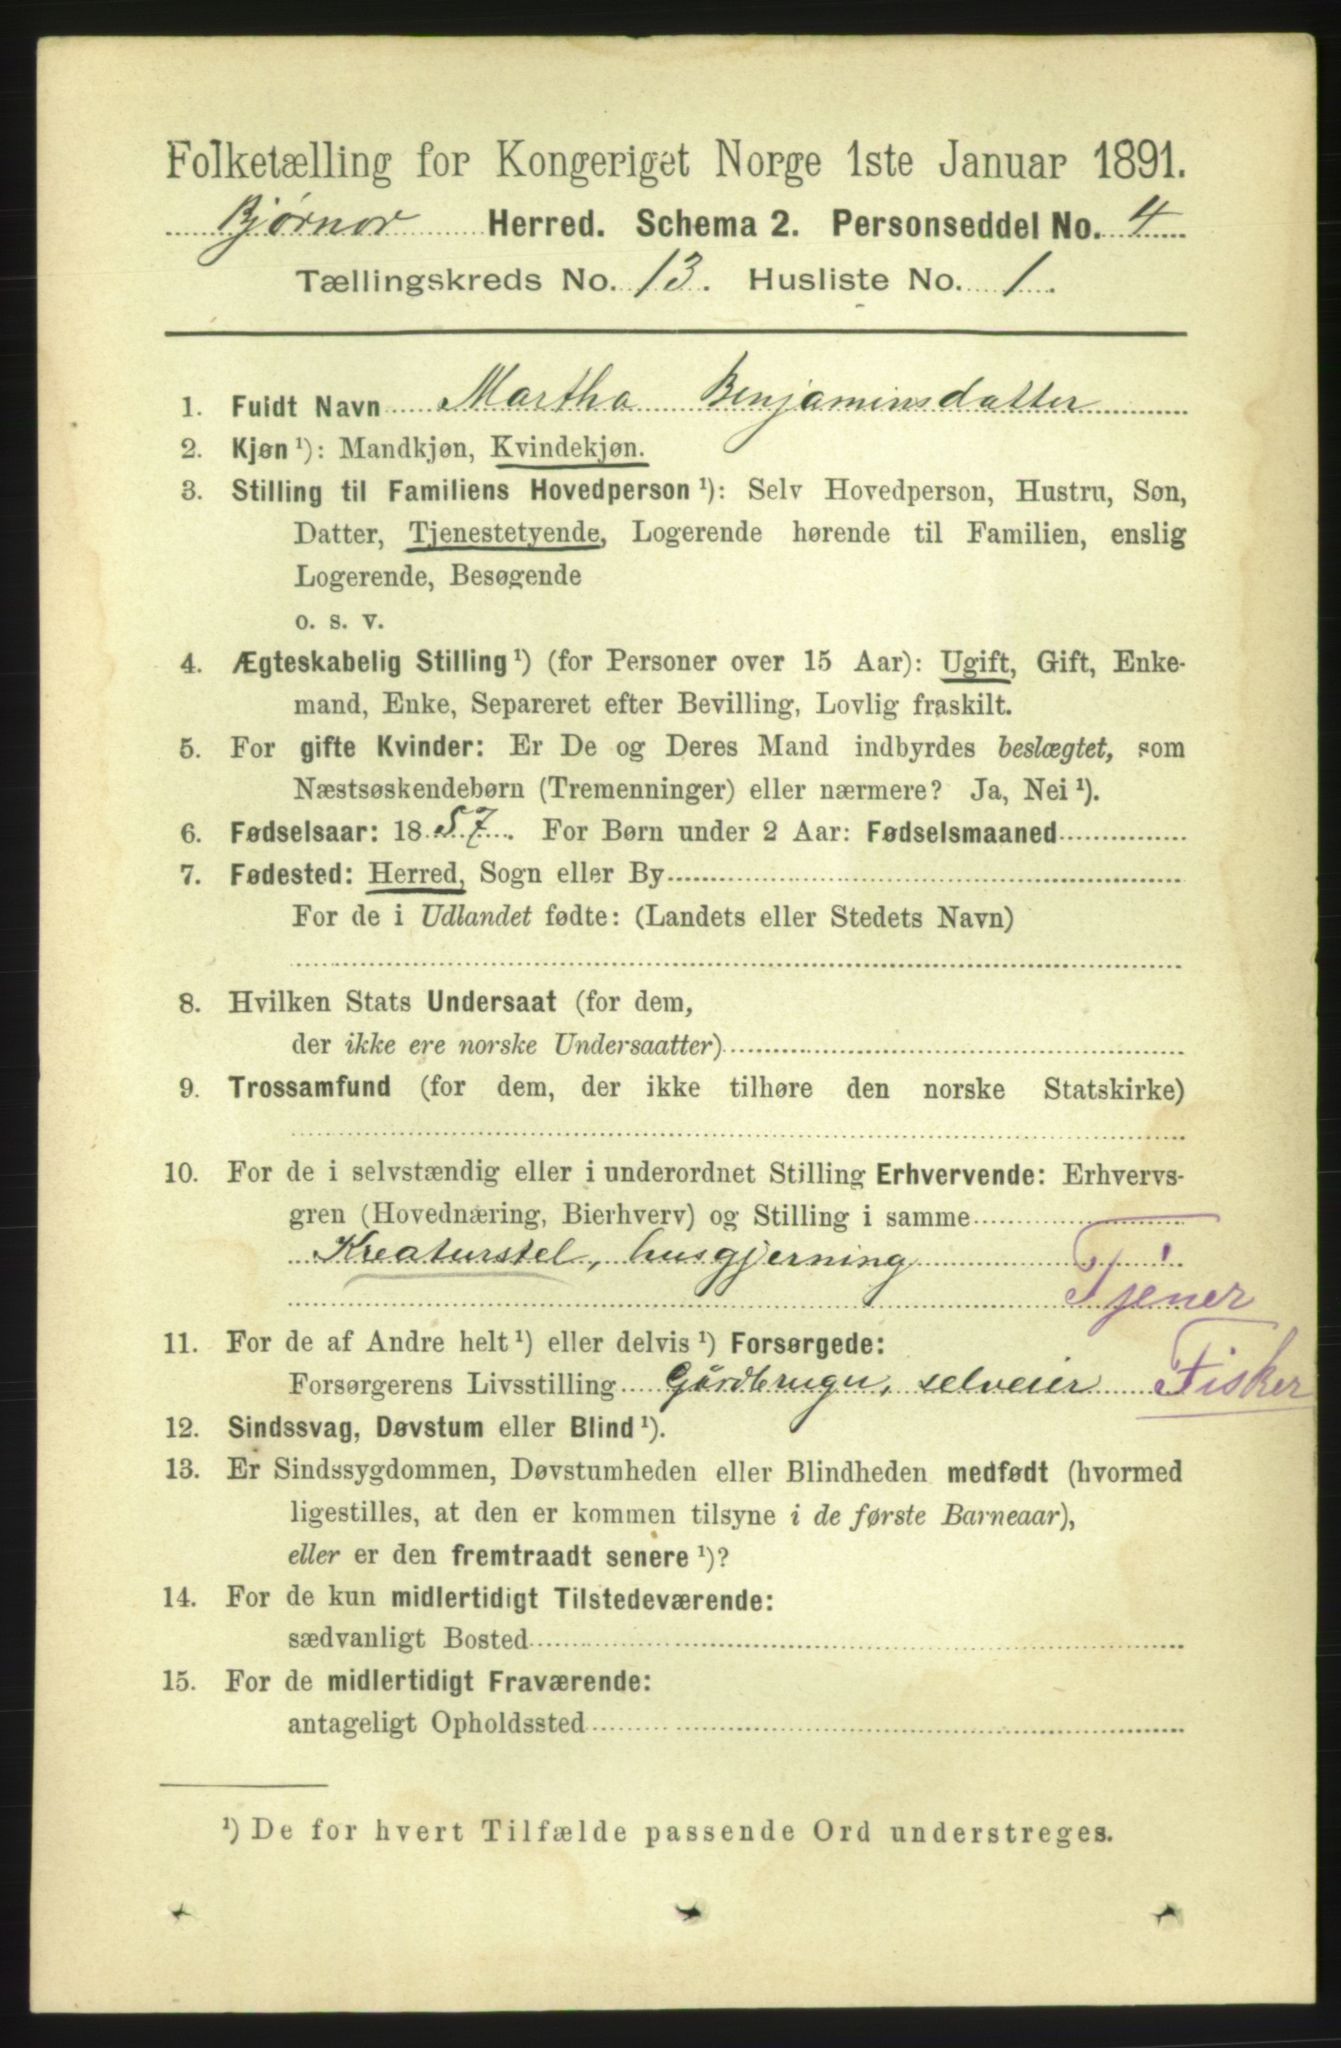 Folketælling for Kongeriget Norge 1ste Januar 1891.
Bjørnør Herred. Schema 2. Personseddel No. 4
Tællingskreds No. 13. Husliste No. 1.
1. Fuldt Navn Martha Benjaminsdatter
2. Kjøn ¹): Mandkjøn, Kvindekjøn.
3. Stilling til Familiens Hovedperson ¹): Selv Hovedperson, Hustru, Søn,
Datter, Tjenestetyende, Logerende hørende til Familien, enslig
Logerende, Besøgende
o. s. v.
4. Ægteskabelig Stilling ¹) (for Personer over 15 Aar): Ugift, Gift, Enke-
mand, Enke, Separeret efter Bevilling, Lovlig fraskilt.
5. For gifte Kvinder: Er De og Deres Mand indbyrdes beslægtet, som
Næstsøskendebørn (Tremenninger) eller nærmere? Ja, Nei ¹).
6. Fødselsaar: 1857. For Børn under 2 Aar: Fødselsmaaned
7. Fødested: Herred, Sogn eller By
For de i Udlandet fødte: (Landets eller Stedets Navn)
8. Hvilken Stats Undersaat (for dem,
der ikke ere norske Undersaatter)
9. Trossamfund (for dem, der ikke tilhøre den norske Statskirke)
10. For de i selvstændig eller i underordnet Stilling Erhvervende: Erhvervs-
gren (Hovednæring, Bierhverv) og Stilling i samme
Kreaturstel, husgjerning
Tjener
11. For de af Andre helt ¹) eller delvis ¹) Forsørgede:
Forsørgerens Livsstilling Gårdbruger, selveier Fisker
12. Sindssvag, Døvstum eller Blind ¹).
13. Er Sindssygdommen, Døvstumheden eller Blindheden medfødt (hvormed
ligestilles, at den er kommen tilsyne i de første Barneaar),
eller er den fremtraadt senere ¹)?
14. For de kun midlertidigt Tilstedeværende:
sædvanligt Bosted
15. For de midlertidigt Fraværende:
antageligt Opholdssted
¹) De for hvert Tilfælde passende Ord understreges.